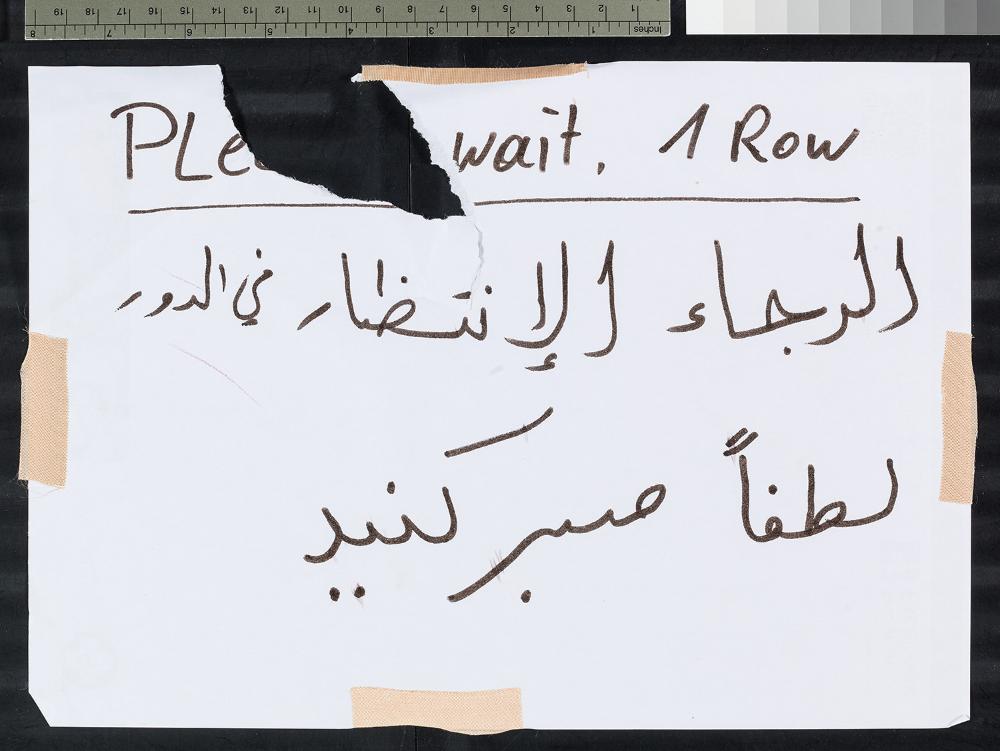 1 2 3 4 5 6 7 8 9 10 11 12 13 14 15 16 17 18 19
Inches 1 2 3 4 5 6 7 8
PLe wait. 1 Row
الرجاء الإنتظار في الدور
لطفاً صبر كنيد